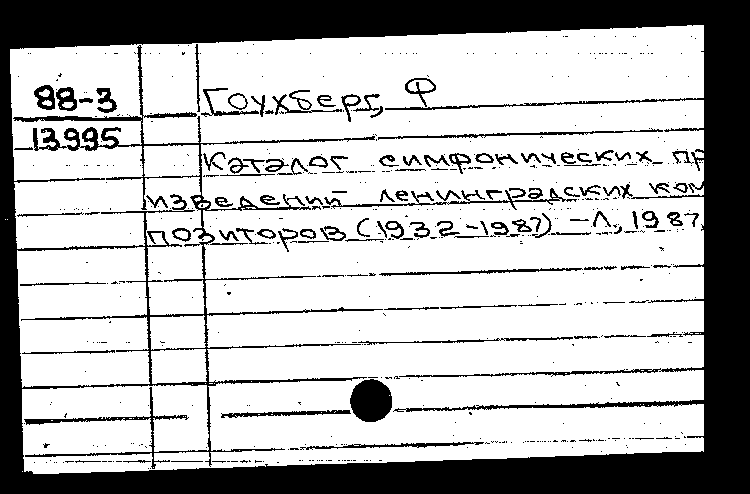 88-3 Гоухберг, Ф
13995
Каталог симфонических пр
изведений ленинградских ком
позиторов (1932-1987) - Л, 1987.